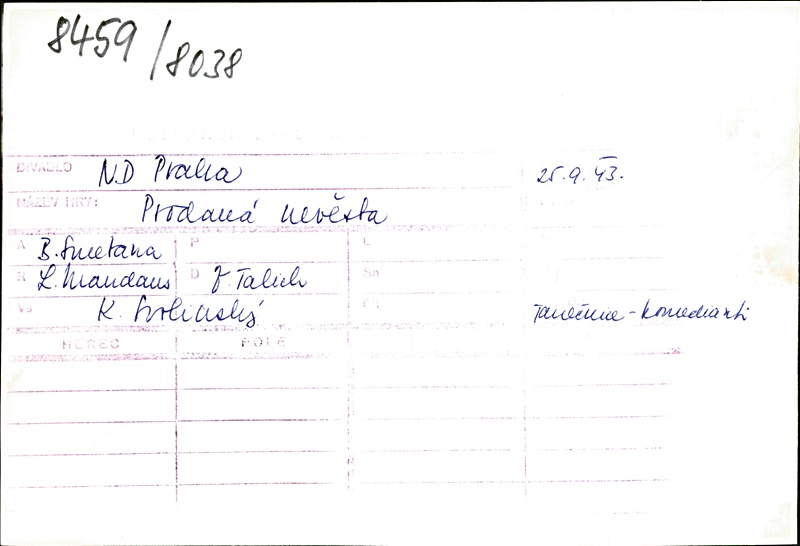 8459/8038
DIVADLO N.D Praha 25.9.43.
NÁZEV HRY: Prodaná nevěsta
A B. Smetana P L
R L. Mandaus D V. Talich Sh
Vs K. Svolinský tanečnice - komedianti
HEREC ROLE